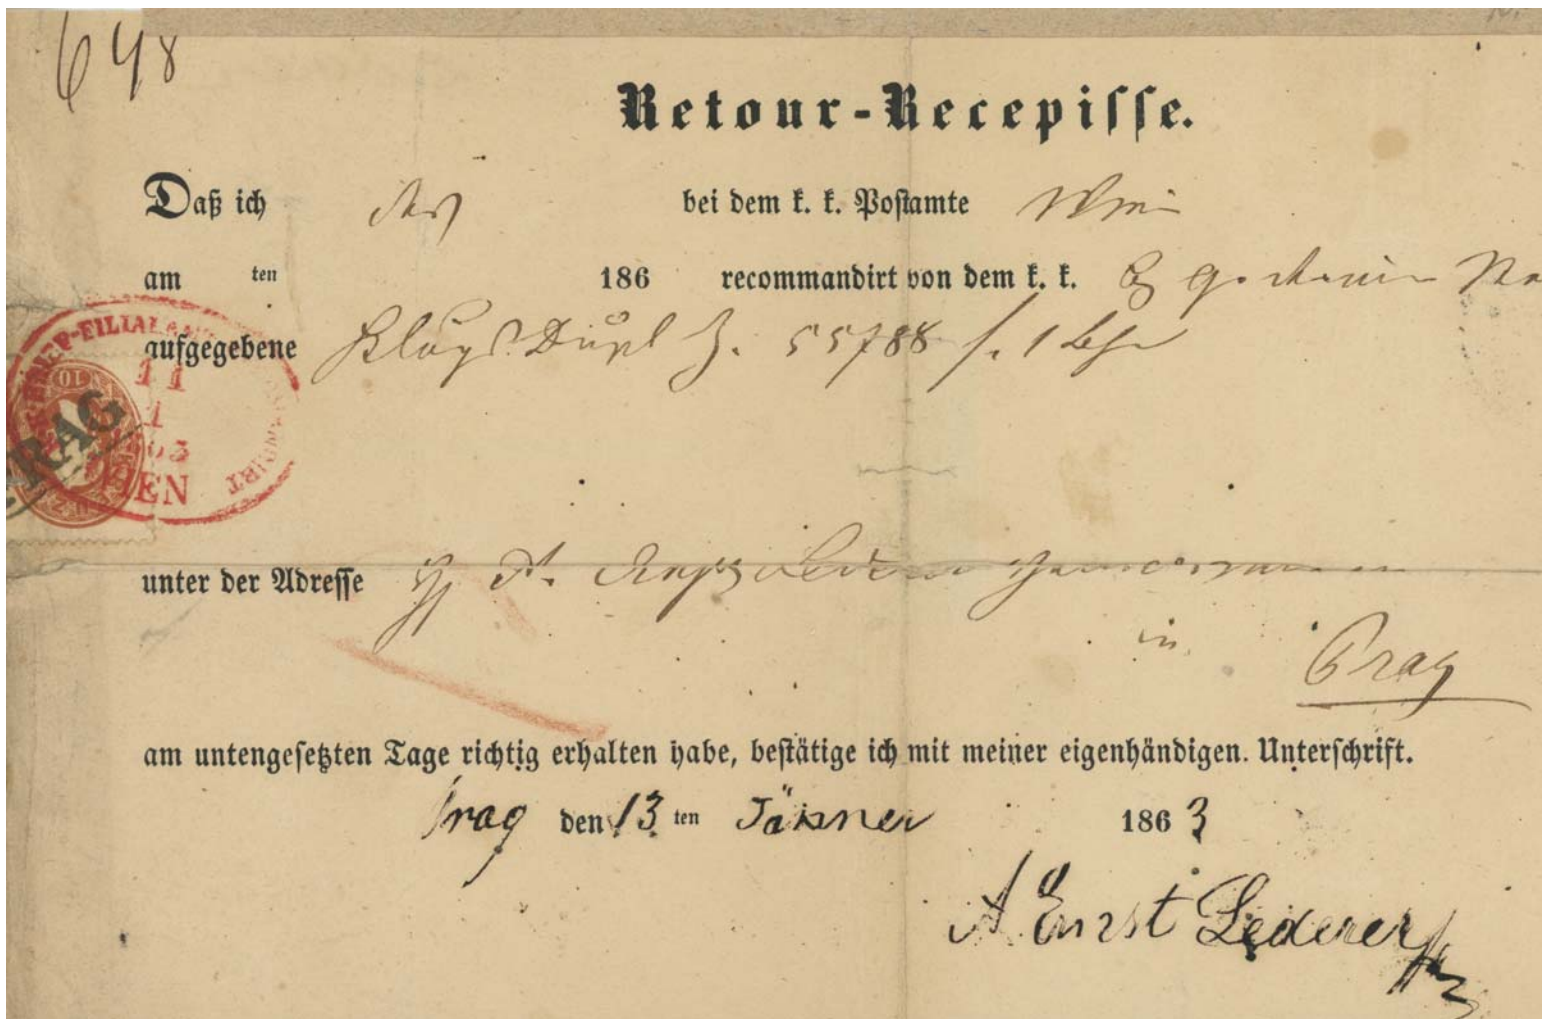 648
Retour-Recepisse.
Daß ich das bei dem k. k. Postamte Wien
am ten 186 recommandirt von dem k. k.
aufgegebene Klags Dupl Z. 55788 s. 1 Beh
unter der Adresse A. Ernst Lederer
in Prag
am untengesetzten Tage richtig erhalten habe, bestätige ich mit meiner eigenhändigen. Unterschrift.
Prag den 13 ten Jänner 1863
A Ernst Lederer
FILIAL
11
1
WIEN
PRAG
10